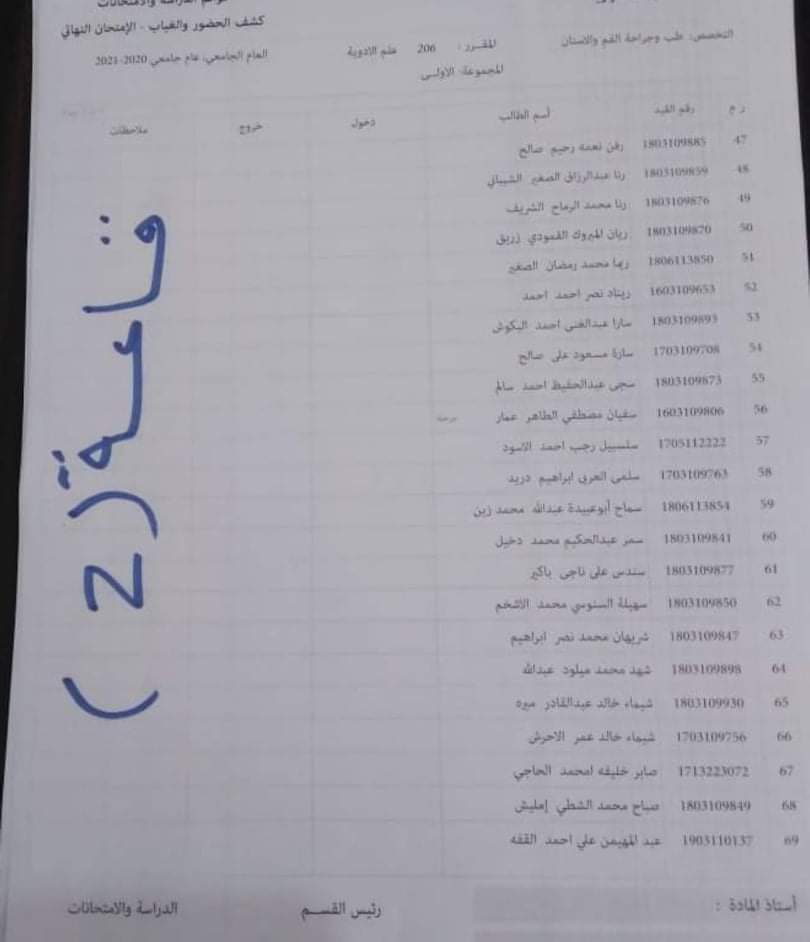 كشف الحضور والغياب - الإمتحان النهائي
التخصص: طب وجراحة الفم والاسنان
المقـرر : 206 علم الادوية
العام الجامعي: عام جامعي 2020-2021
المجموعة: الاولـى
ر م رقم القيد أسم الطالب دخول خروج ملاحظات
47 1803109885 رفن نعمه رحيم صالح
48 1803109859 رنا عبدالرزاق الصغير الشيباني
49 1803109876 رنا محمد الرماح الشريف
50 1803109870 ريان المبروك القمودي زريق
51 1806113850 ريما محمد رمضان الصغير
52 1603109653 ريناد نصر احمد احمد
53 1803109893 سارا عبدالغنى احمد البكوش
54 1703109708 سارة مسعود على صالح
55 1803109873 سجى عبدالحفيظ احمد سالم
56 1603109806 سفيان مصطفي الطاهر عمار
57 1705112222 سلسبيل رجب احمد الاسود
58 1703109763 سلمى العربى ابراهيم دريد
59 1806113854 سماح أبوعبيدة عبدالله محمد زين
60 1803109841 سمر عبدالحكيم محمد دخيل
61 1803109877 سندس على ناجى باكير
62 1803109850 سهيلة السنوسي محمد الاشخم
63 1803109847 شريهان محمد نصر ابراهيم
64 1803109898 شهد محمد ميلود عبدالله
65 1803109930 شيماء خالد عبدالقادر ميره
66 1703109756 شيماء خالد عمر الاحرش
67 1713223072 صابر خليفه امحمد الحاجي
68 1803109849 صباح محمد الشطي إمليش
69 1903110137 عبد المهيمن علي احمد القفه
قاعـة (2)
أستاذ المادة : رئيس القسـم الدراسة والامتحانات